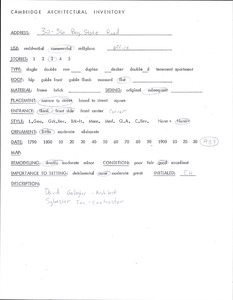 CAMBRIDGE ARCHITECTURAL INVENTORY
ADDRESS: 30-36 Bay State Road
USE: residential commercial religious office
STORIES: 1 2 3 4 5
TYPE: single double row duplex decker double decker tenement apartment
ROOF: hip gable front gable flank mansard flat
MATERIAL: frame brick SIDING: original subsequent
PLACEMENT: narrow to street broad to street square
ENTRANCE: flank front side front center
ORNAMENT: little moderate elaborate
DATE: 1700 1800 10 20 30 40 50 60 70 80 90 1900 10 20 30
MAP:
REMODELING: little moderate major CONDITION: poor fair good excellent
IMPORTANCE TO SETTING: detrimental moderate great INITIALED:
DESCRIPTION:
- Architect
Sylvester Inc - Contractor